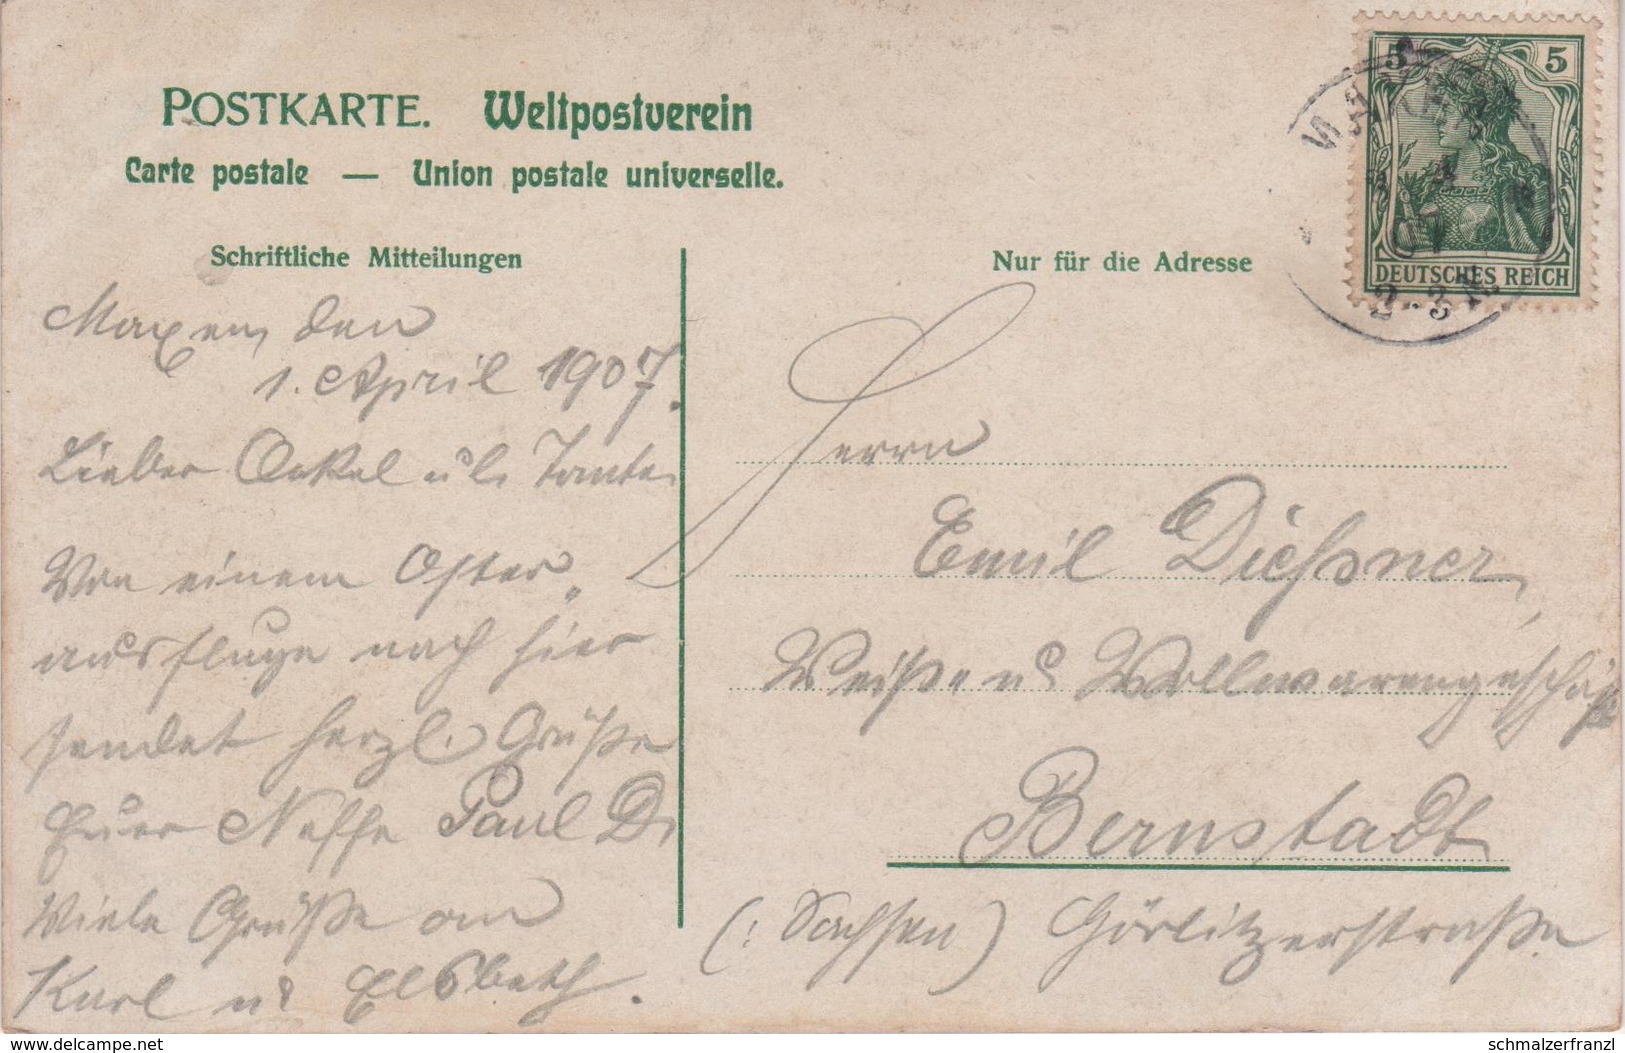 POSTKARTE. Weltpostverein
Carte postale — Union postale universelle.
Schriftliche Mitteilungen
Maxen, den
1. April 1907.
Lieber Onkel u. l. Tante
Von einem Oster-
ausfluge nach hier
sendet herzl. Grüße
Euer Neffe Paul D.
Viele Grüße an
Karl u. Elsbeth.
Nur für die Adresse
5 5
DEUTSCHES REICH
MAXEN
1 4
07
2-3 N.
Herrn
Emil Dießner,
Weiße u. Wollwarengeschäft
Bernstadt
(: Sachsen) Görlitzerstraße
delcampe.net
schmalzerfranzl